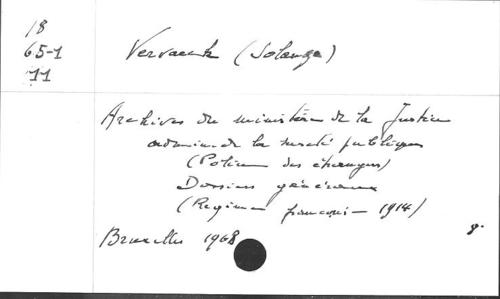 18
65-1
11
Vervaeck (Solange)
Archives du ministère de la Justice
admin. de la sureté publique
(Police des étrangers)
Dossiers généraux
(Régime français - 1914)
Bruxelles 1968
8°